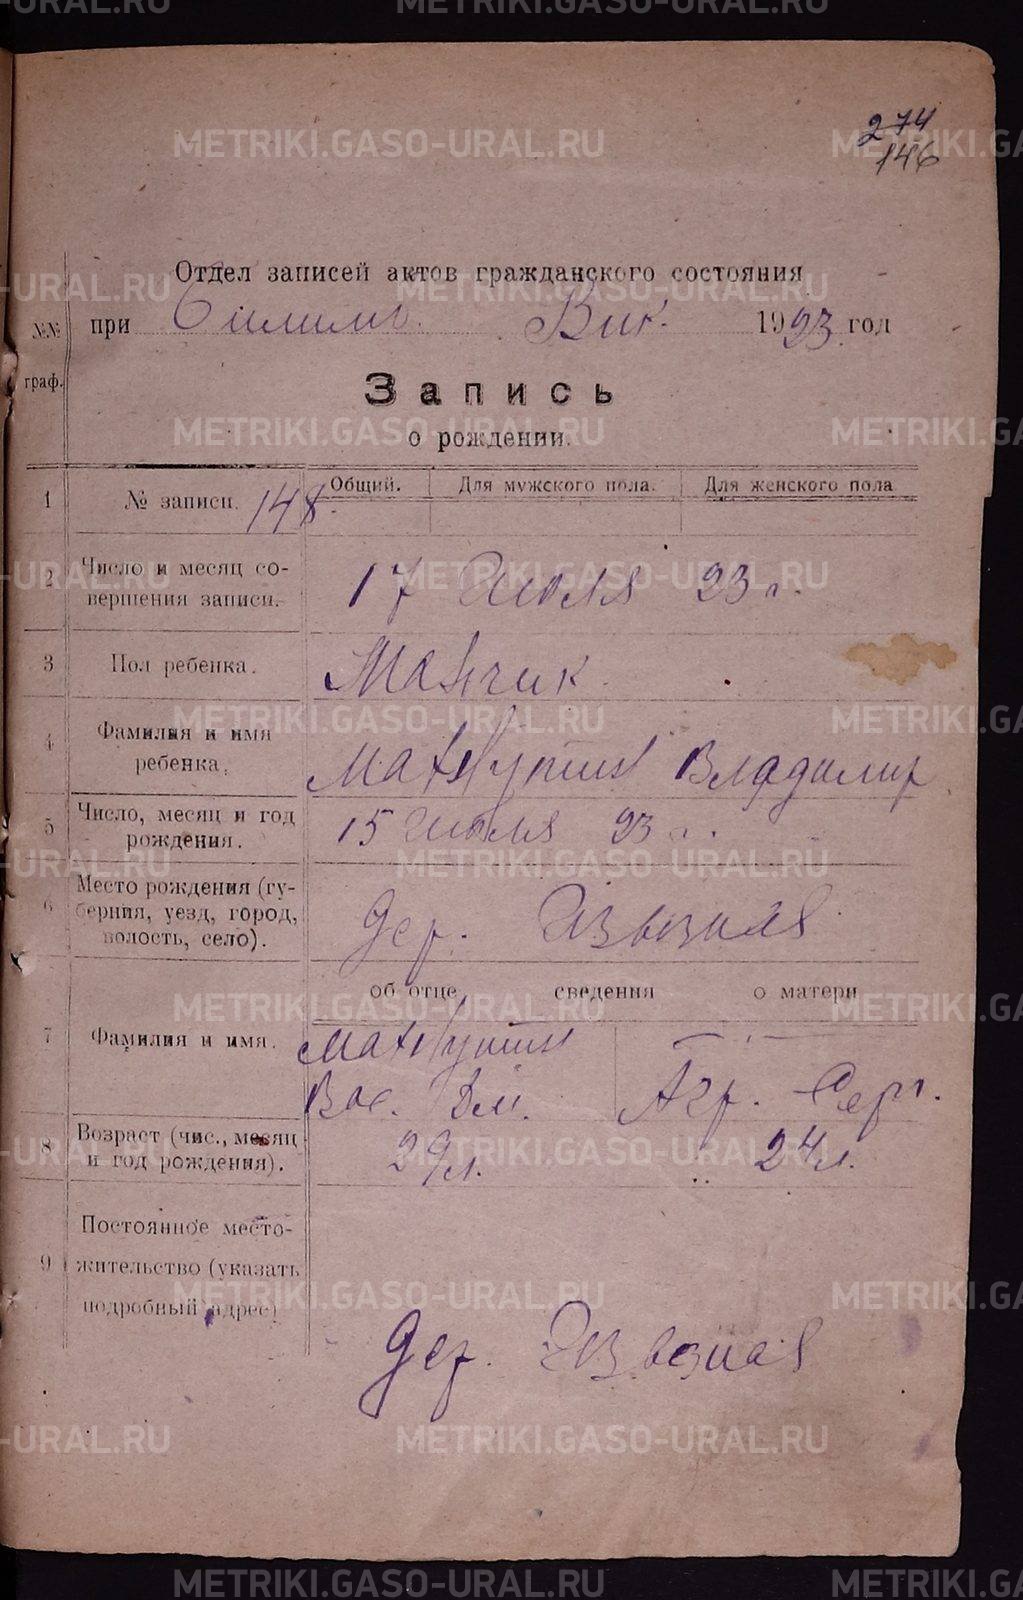 274
146
Отдел записей актов гражданского состояния
№№ при Вик. 1923 год
граф.
Запись
о рождении.
Общий. Для мужского пола. Для женского пола
1 № записи. 148.
2 Число и месяц со-
вершения записи. 17 Июля 23 г.
3 Пол ребенка. Мальчик
4 Фамилия и имя
ребенка. Махнутин Владимир
5 Число, месяц и год
рождения. 15 Июля 23 г.
6 Место рождения (гу-
берния, уезд, город,
волость, село). Дер. Извозная
об отце сведения о матери
7 Фамилия и имя. Махнутин — " —
Вас. Агр. Серг.
8 Возраст (чис., месяц
и год рождения). 29 л. 24 л.
9 Постоянное место-
жительство (указать
подробный адрес)
Дер. Извозная
METRIKI.GASO-URAL.RU